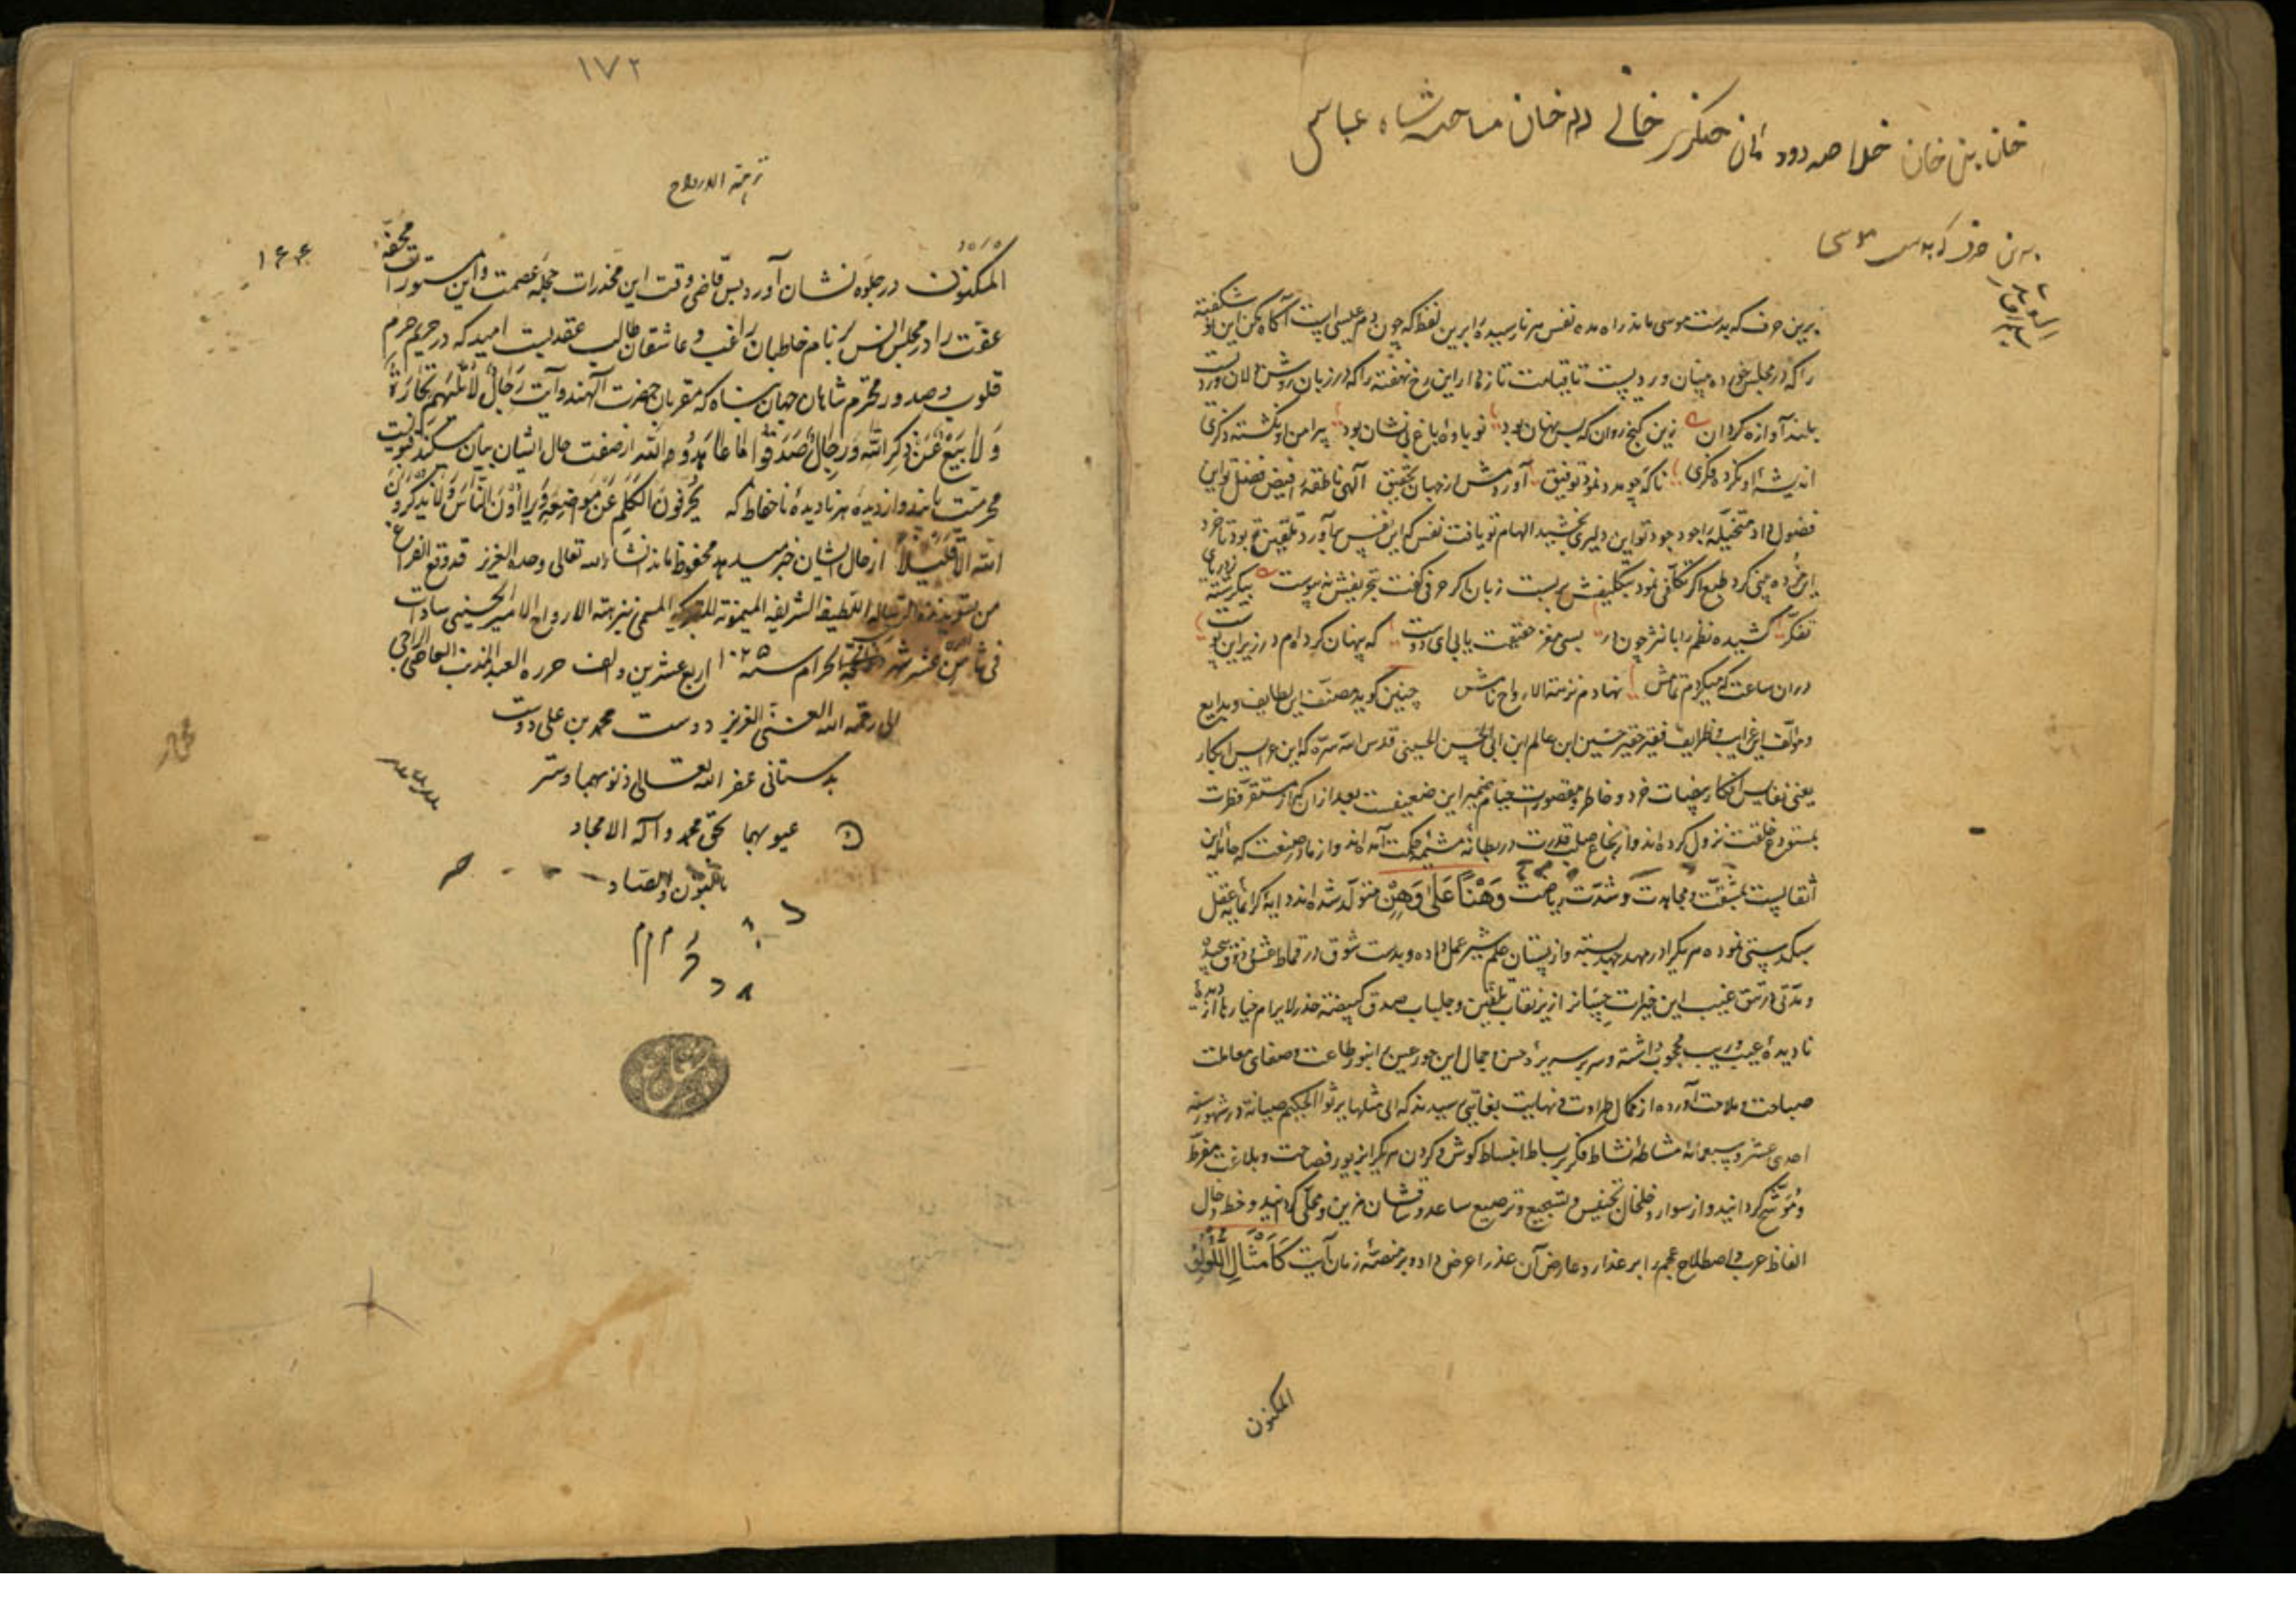 خان بن خان خلاصه دودمان چنگیز خانی خان شاه عباس
برین حرف که بدست موسی
برین حرف که بدست موسی ماند راه مده نفس هر نارسیده را برین لفظ که چون دم عیسی است آگاه کن این نو شکفته
را که در مجلس خورده بینان وردیست تا قیامت تازه دار این رخ نهفته را که در زبان روشن دلان وردیست
بلند آوازه گردان زین گنج روان که بس نهان بود نوباوه باغ بی نشان بود پیرامن او نگشته ذکری
اندیشه او نکرده فکری ناگه چو مدد نمود توفیق آوردمش از جهان تحقیق الهی ناطقه را فیض فضل تو این
فضول داد متخیله را جود وجود تو این دلیری بخشید الهام تو یافت نفس که این نفس بر آورد تلقین تو بود تا خرد
این خرده بینی کرد طبع اگر تکلفی نمود بتکلیفش بر بست زبان اگر حرفی گفت بتحریفش نه پیوست
تفکر کشیده نظم را با نثر چون در بسی مغز حقیقت یابی ای دوست که پنهان کرده‌ام در زیر این پوست
در آن ساعت که میکردم تمامش نهادم نزهة الارواح نامش چنین گوید مصنف این لطایف و بدایع
و مؤلف این غرایب و ظرایف فقیر حقیر حسین ابن عالم ابن ابی الحسن الحسینی قدس الله سره که این عرایس ابکار
یعنی نفایس افکار بنات خرد و خاطر و مقصورات خیام ضمیر این ضعیفست بعد از آن که از مستقر فطرت
بمستودع خلقت نزول کرده‌اند و از نخاع صلب قدرت در بطانه مشیمه حکمت آمده‌اند و از مادر صنعت که حامله این
اثقالیست بمشقت و مجاهدت و شدت ریاضت وَهْنًا عَلَی وَهْنٍ متولد شده‌اند دایه گرانمایه عقل
سبکدستی نموده هر یکرا در مهد جهد بسته و از پستان علم شیر عمل داده و بدست شوق در قماط عشق و ذوق پیچیده
و مدتی در تتق غیب این خیرات حسان را زیر نقاب یقین و جلباب صدق
نادیده عیب و ریب محجوب داشته و سربسر حسن و جمال این حور عین را بنور طاعت و صفای معاملت
صباحت و ملاحت آورده از کمال طراوت و نهایت بغایتی رسیدند که الی مثلها یرنو الحلیم صبابة در شهور سنه
احدی عشر و سبعمائه مشاطه نشاط فکر بر بساط انبساط گوش و گردن هر یکرا بزیور فصاحت و بلاغت مقرط
و موشح گردانید و از سوار و خلخال تجنیس و تسجیع و ترصیع ساعد و ساقشان مزین و محلی گردانید و خط و خال
الفاظ عرب و اصطلاح عجم را بر عذار و عارض آن عذرا عرض داد و بر منصه زبان آیت کَأَمْثَالِ اللُّؤْلُؤِ
المکنون
۱۷۲
نزهة الارواح
۱۶۶
المکنون در جلوه نشان آورد پس قاضی وقت این مخدرات حجله عصمت و این مستورات محفه
عفت را در مجلس انس بنام خاطبان راغب و عاشقان طالب عقد بست امید که در حریم حرم
قلوب و صدور محترم شاهان جهان پناه که مقربان حضرت الهند و آیت رِجَالٌ لَا تُلْهِیهِمْ تِجَارَةٌ
وَلَا بَیْعٌ عَنْ ذِکْرِ اللهِ وَرِجَالٌ صَدَقُوا مَا عَاهَدُوا الله از صفت حال ایشان بیان میکند
محرمت یابند و از دیده هر نادیده ناحفاظ که یُحَرِّفُونَ الْکَلِمَ عَنْ مَوَاضِعِهِ وَیُرَاؤُنَ النَّاسَ وَلَا یَذْکُرُونَ
اللهَ إِلَّا قَلِیلًا از حال ایشان خبر میدهد محفوظ ماند انشاء الله تعالی وحده العزیز قد وقع الفراغ
من تسوید هذه الرسالة اللطیفة الشریفة المیمونة المسمی بنزهة الارواح الامیر الحسینی سادات
فی ثامن عشر شهر ذی حجة الحرام سنه ۱۰۲۵ اربع عشرین و الف حرره العبد المذنب العاصی الراجی
الی رحمة الله الغنی العزیز دوست محمد بن علی دوست
بدستانی غفر الله تعالی ذنوبهما و ستر
عیوبهما بحق محمد و آله الامجاد
بالنون والصاد